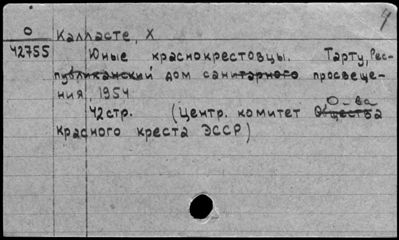 4
О
Калласте, Х
42755
Юные краснокрестовцы. Тарту, Рес-
публиканский дом санитарного просвеще-
ния, 1954
42стр. (Центр. комитет Общества
О-ва
Красного креста ЭССР)